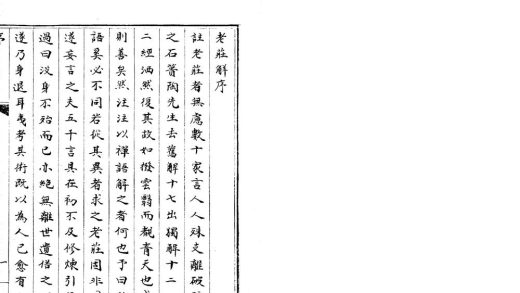 老莊解序
註老莊者無慮數十家言人人殊支離破
之石簣陶先生去舊解十七出獨解十二
二經洒然復其故如撥雲翳而覩青天也
則善矣然注注以禪語解之者何也予曰
語異必不同若從其異者求之老莊固非
遂妄言之夫五千言具在初不及修煉引
過曰沒身不殆而已亦絕無離世遺俗之
遂乃身退耳夷考其術既以為人已愈有